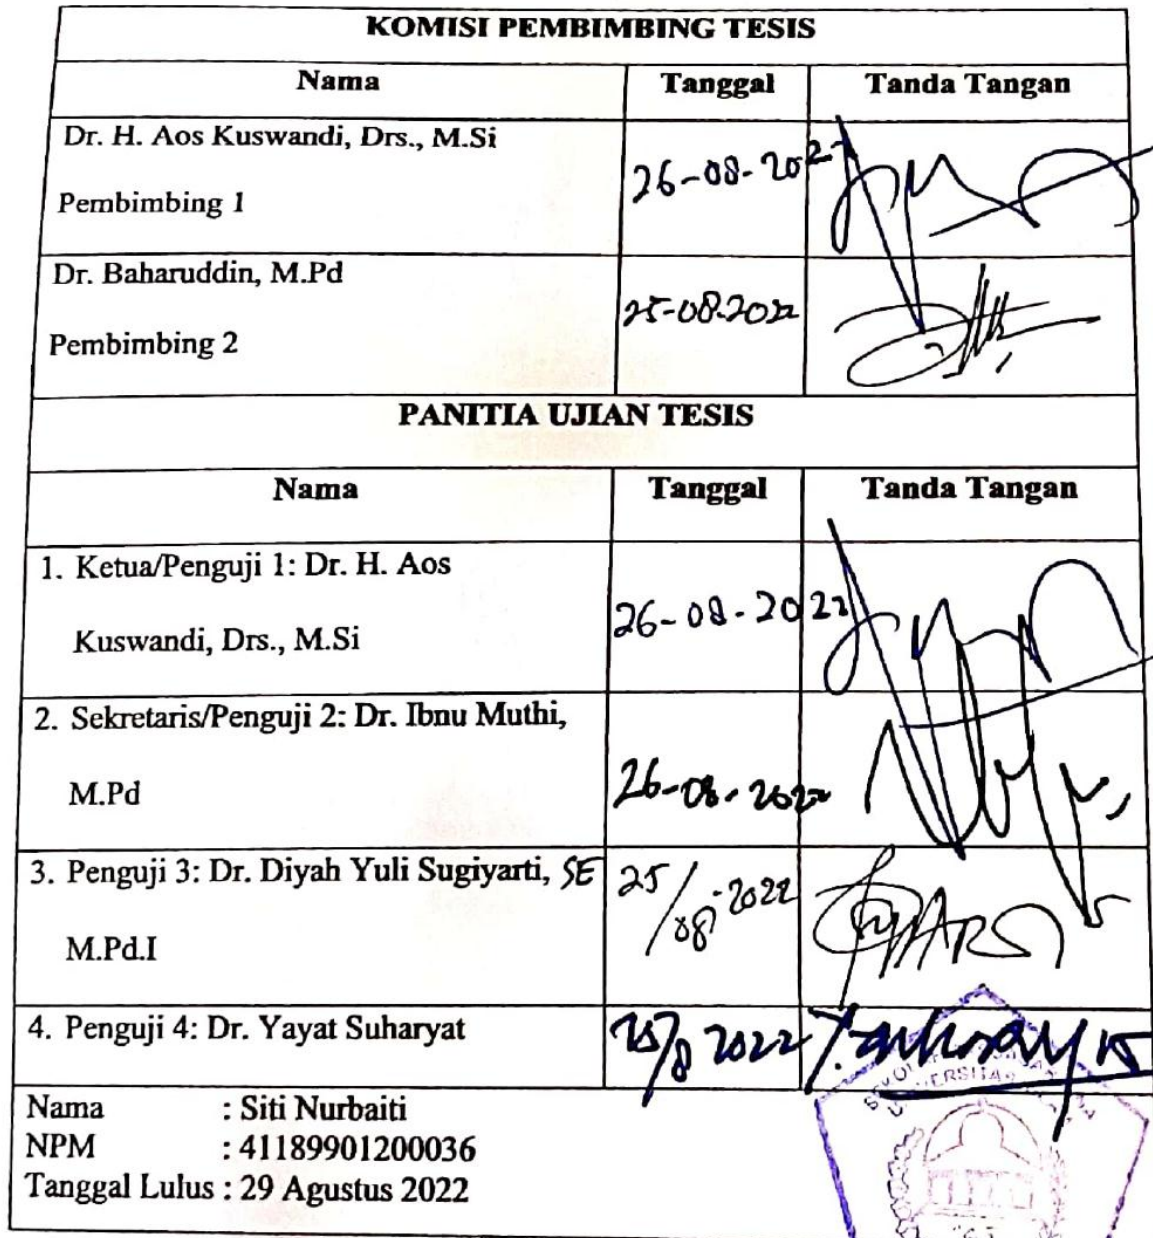 KOMISI PEMBIMBING TESIS
Nama Tanggal Tanda Tangan
Dr. H. Aos Kuswandi, Drs., M.Si
26-08-2022
Pembimbing 1
Dr. Baharuddin, M.Pd
25-08-2022
Pembimbing 2
PANITIA UJIAN TESIS
Nama Tanggal Tanda Tangan
1. Ketua/Penguji 1: Dr. H. Aos
26-08-2022
Kuswandi, Drs., M.Si
2. Sekretaris/Penguji 2: Dr. Ibnu Muthi,
M.Pd 26-08-2022
3. Penguji 3: Dr. Diyah Yuli Sugiyarti, SE 25/08-2022
M.Pd.I
4. Penguji 4: Dr. Yayat Suharyat 25/8 2022
Nama : Siti Nurbaiti
NPM : 41189901200036
Tanggal Lulus : 29 Agustus 2022